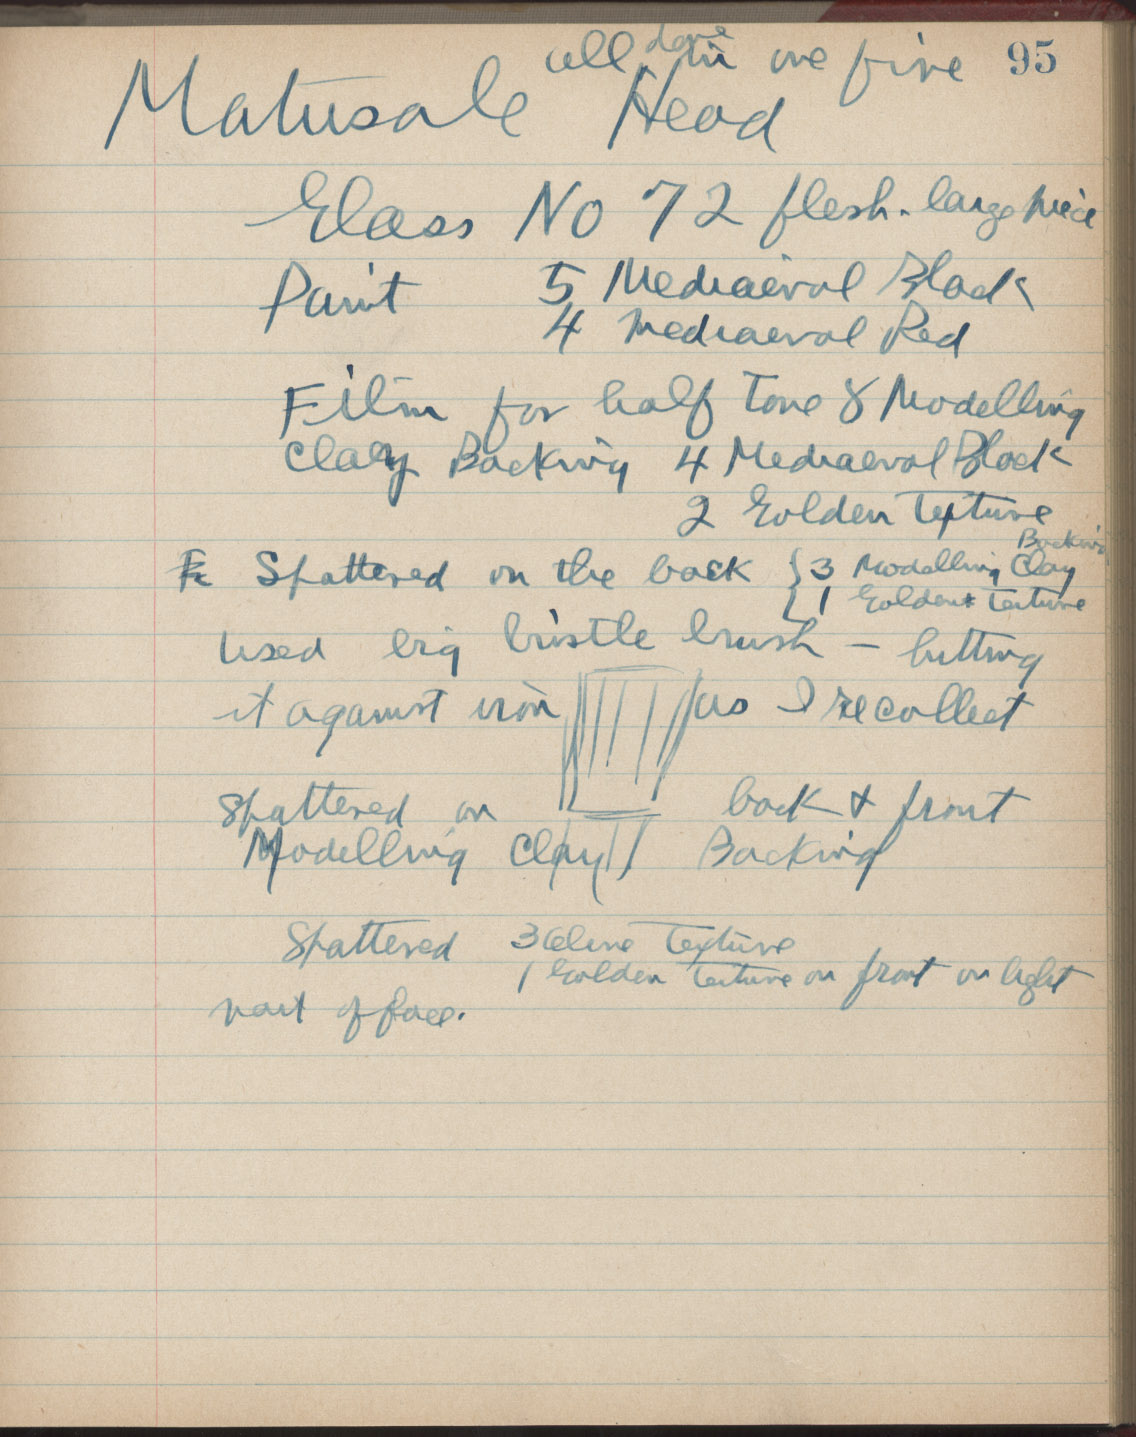 95
all done in one fire
Matusale Head
Glass No 72 flesh. large piece
Paint 5 Mediaeval Black
4 Mediaeval Red
Film for half Tone 8 Modelling
Clay Backing 4 Mediaeval Black
2 Golden Texture
Spattered on the back { 3 Modelling Clay Backing
1 Golden Texture
used big bristle brush – hitting
it against iron as I recollect
Spattered on back & front
Modelling Clay Backing
Spattered 3 Texture
1 Golden Texture on front on light
part of face.